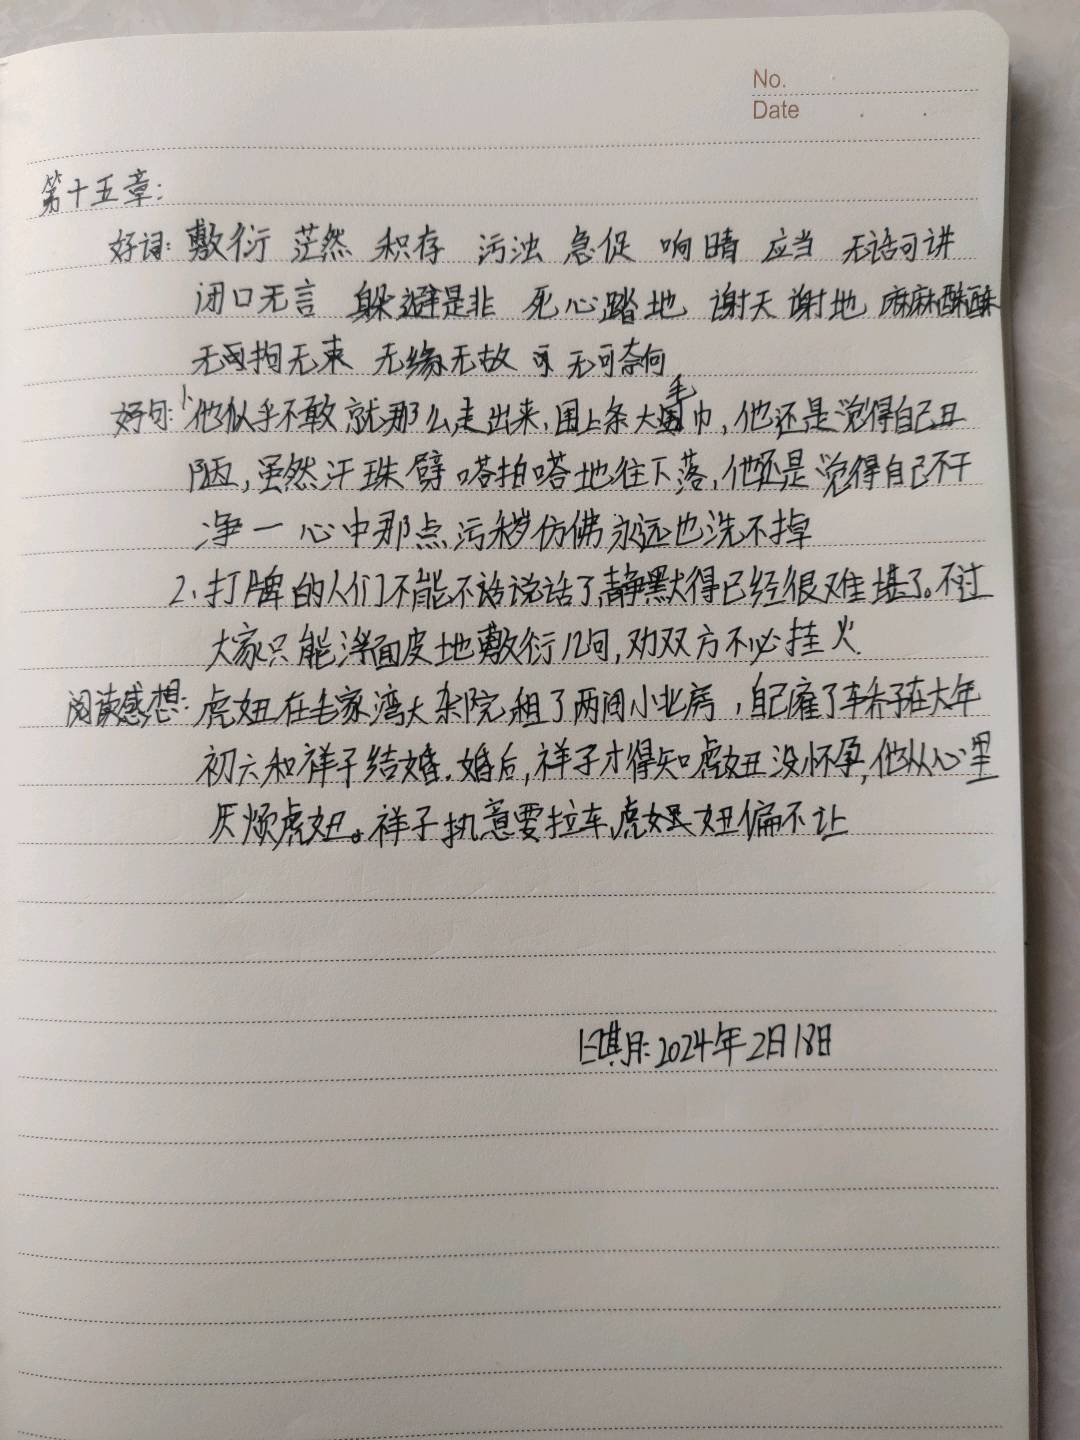 No.
Date
第十五章:
好词: 敷衍 茫然 积存 污浊 急促 响晴 应当 无话可讲
闭口无言 躲避是非 死心踏地 谢天谢地 麻麻酥酥
无拘无束 无缘无故 无可奈何
好句: 1、他似乎不敢就那么走出来,围上条大毛巾,他还是觉得自己丑
陋,虽然汗珠劈嗒拍嗒地往下落,他还是觉得自己不干
净一心中那点污秽仿佛永远也洗不掉
2、打牌的人们不能不说话了,静默得已经很难堪了。不过
大家只能浮面皮地敷衍几句,劝双方不必挂火.
阅读感想: 虎妞在毛家湾大杂院租了两间小北房,自己雇了车轿子在大年
初六和祥子结婚.婚后,祥子才得知虎妞没怀孕,他从心里
厌烦虎妞。祥子执意要拉车,虎妞偏不让
2024年2月18日